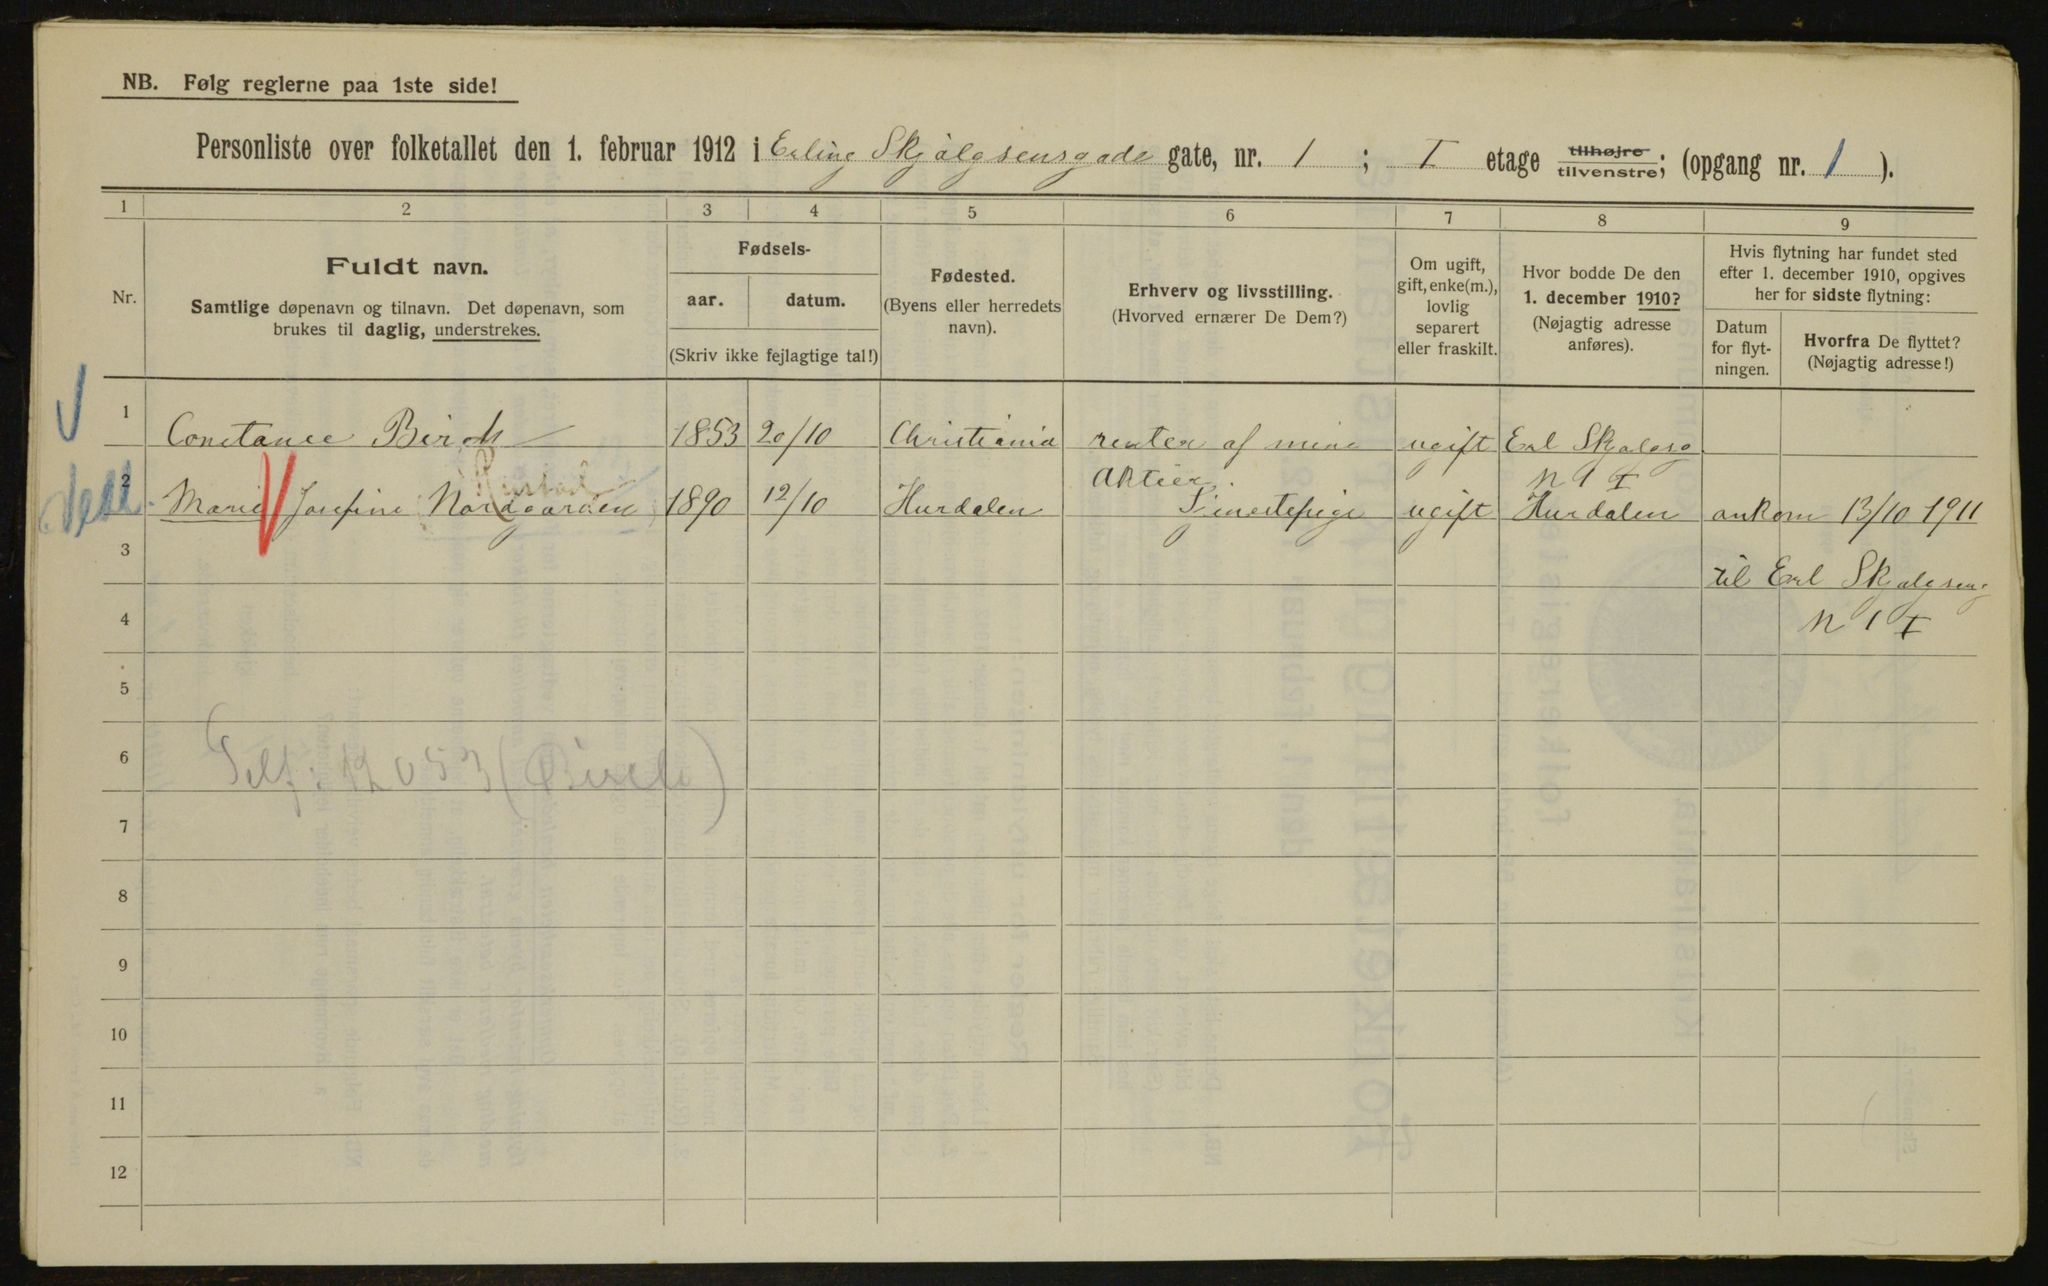 NB. Følg reglerne paa 1ste side!
Personliste over folketallet den 1. februar 1912 i Erling Skjalgsensgade gate, nr. 1 ; I etage tilhøjre tilvenstre; (opgang nr. 1 ).
1 2 3 4 5 6 7 8 9
Nr.
Fuldt navn.
Samtlige døpenavn og tilnavn. Det døpenavn, som
brukes til daglig, understrekes.
Fødsels-
aar. datum.
(Skriv ikke fejlagtige tal!)
Fødested.
(Byens eller herredets
navn).
Erhverv og livsstilling.
(Hvorved ernærer De Dem?)
Om ugift,
gift, enke(m.),
lovlig
separert
eller fraskilt.
Hvor bodde De den
1. december 1910?
(Nøjagtig adresse
anføres).
Hvis flytning har fundet sted
efter 1. december 1910, opgives
her for sidste flytning:
Datum
for flyt-
ningen.
Hvorfra De flyttet?
(Nøjagtig adresse!)
1 Constance Birch 1853 20/10 Christiania renter af mine ugift Erl Skjalgsg
Aktier. N 1 I
Rustad
2 Marie Josefine Nordgarden 1890 12/10 Hurdalen Tjenestepige ugift Hurdalen ankom 13/10 1911
3 til Erl Skjalgseng
4 N 1 I
5
6
Telf: 12053 (Birch)
7
8
9
10
11
12